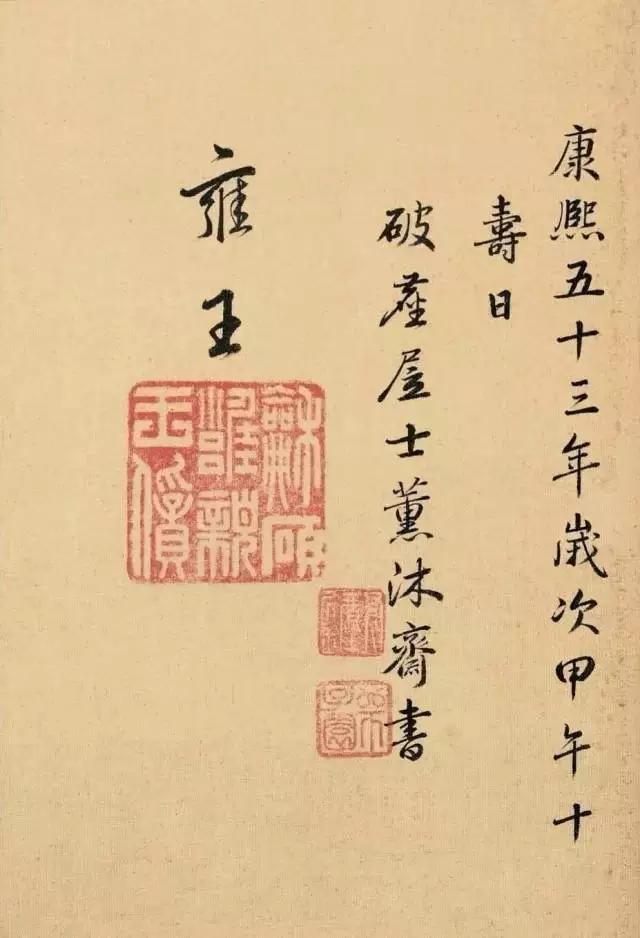 康熙五十三年歲次甲午十
壽日
破塵居士薰沐齋書
雍王
龢碩雝親王